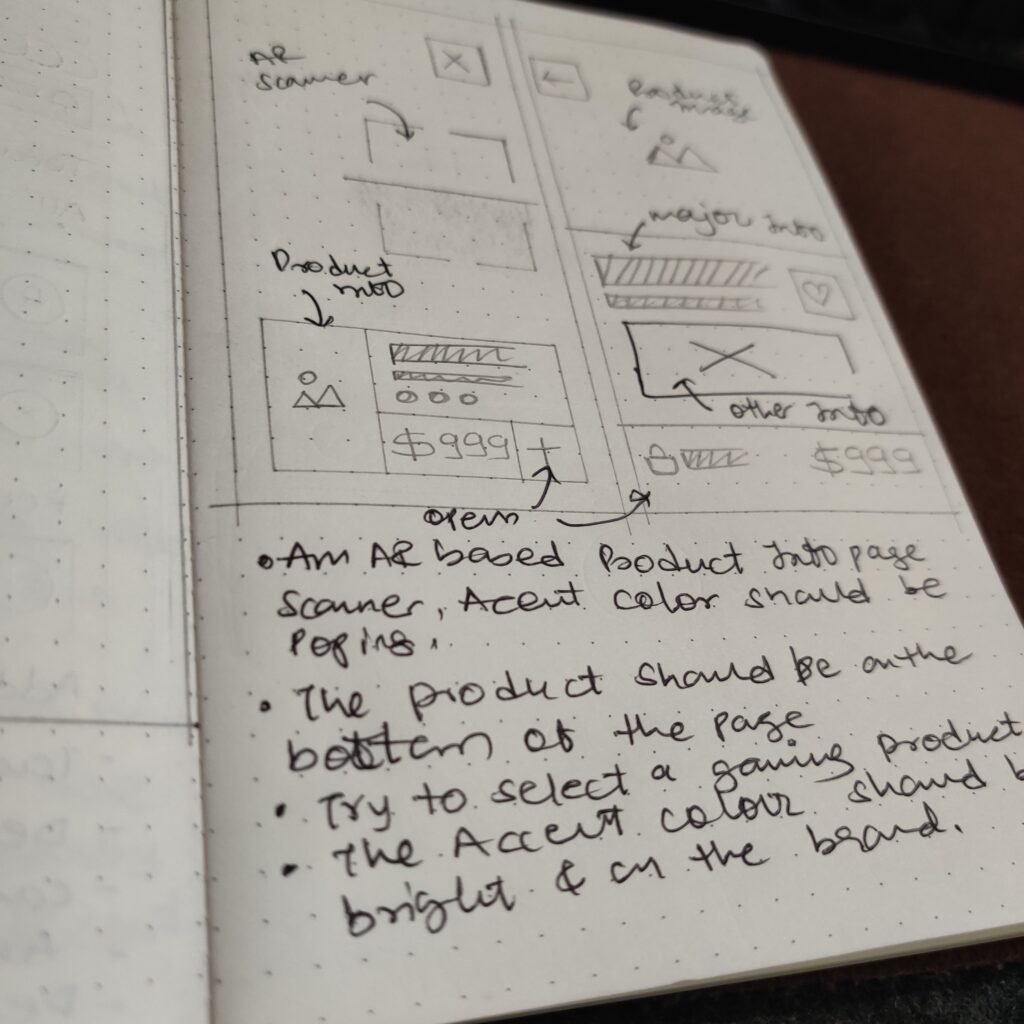 AR
Scanner
Product
Image
major Info
Product
Info
$999
other Info
$999
open
• An AR based Product Info page
Scanner, Acent color should be
Poping.
• The product should be on the
bottom of the page
• Try to select a gaming product
• The Accent colour should b
bright & on the brand.